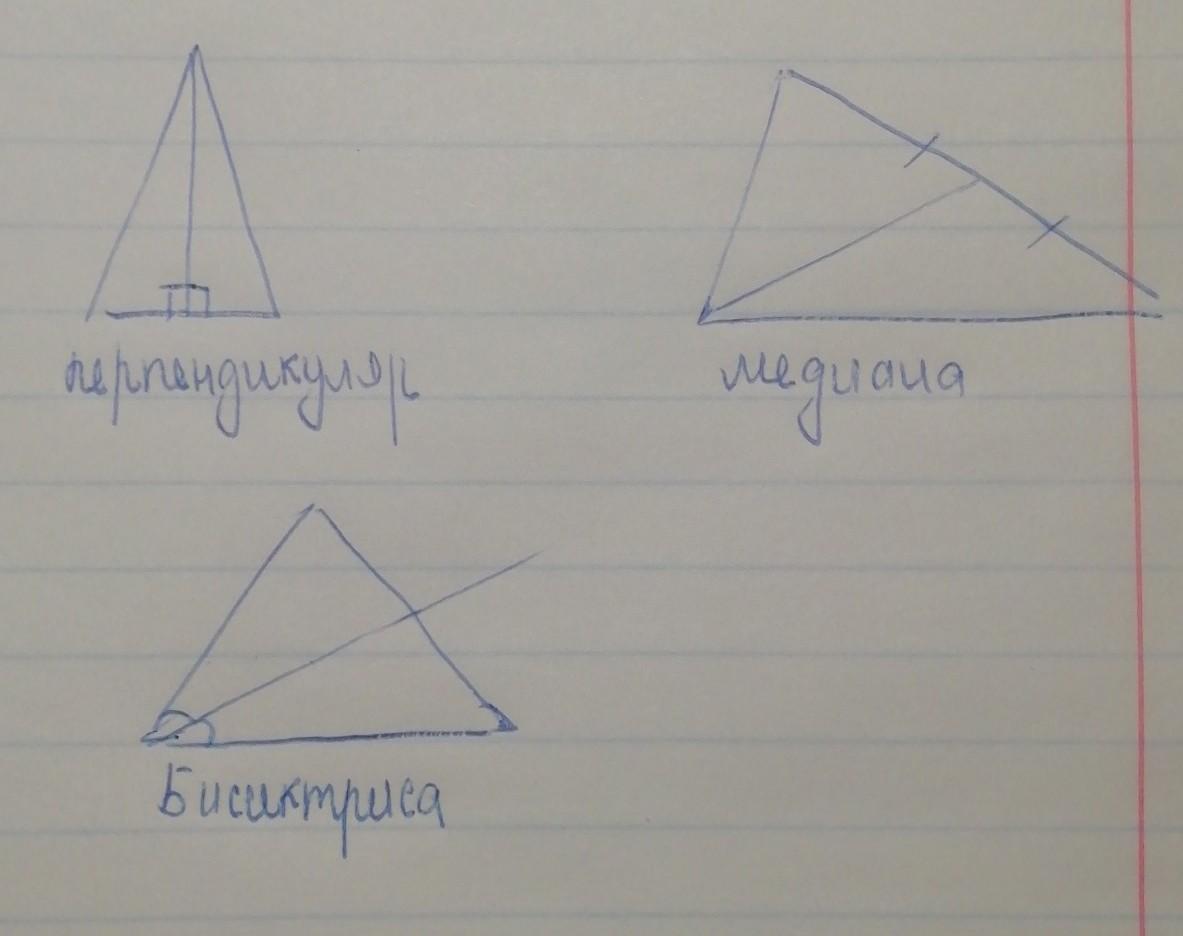 перпендикуляр
медиана
Бисиктриса